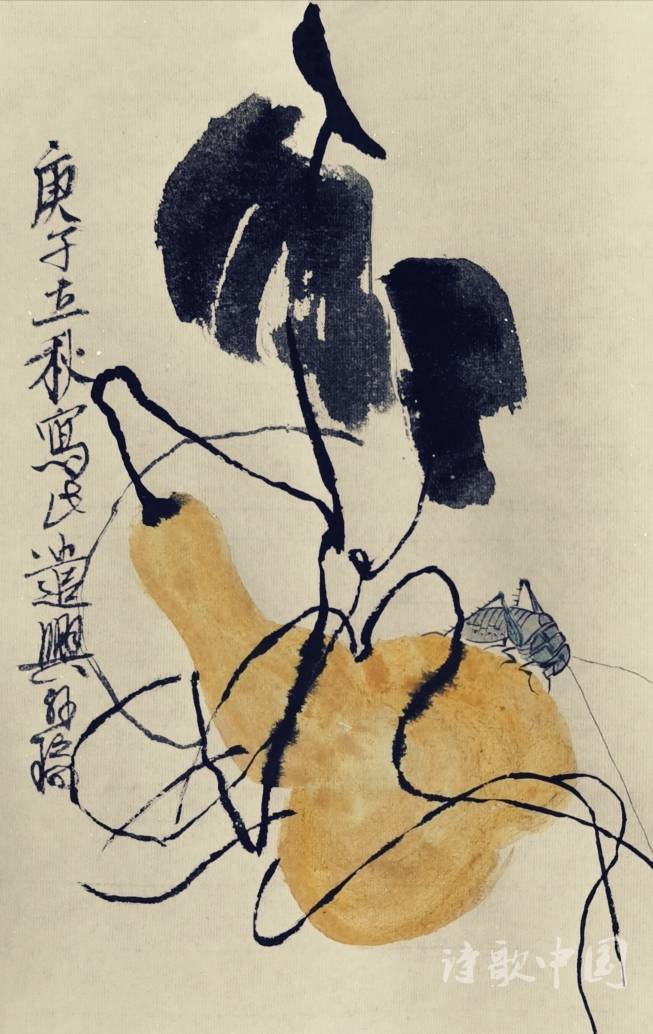 庚子立秋寫此遣興
诗歌中国